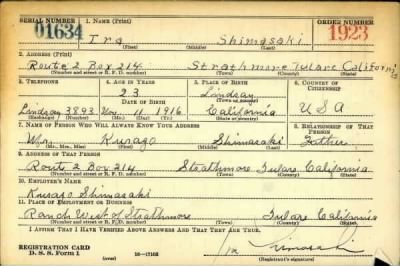 SERIAL NUMBER 1. NAME (Print) ORDER NUMBER
01634 Ira Shimasaki 1923
(First) (Middle) (Last)
2. ADDRESS (Print)
Route 2 Box 214 Strathmore Tulare California
(Number and street or R. F. D. number) (Town) (County) (State)
3. TELEPHONE 4. AGE IN YEARS 5. PLACE OF BIRTH 6. COUNTRY OF CITIZENSHIP
23 Lindsay
DATE OF BIRTH (Town or county)
Lindsay 3893 Nov 11 1916 California USA
(Exchange) (Number) (Mo.) (Day) (Yr.) (State or country)
7. NAME OF PERSON WHO WILL ALWAYS KNOW YOUR ADDRESS 8. RELATIONSHIP OF THAT PERSON
Shimasaki Father
(Mr., Mrs., Miss) (First) (Middle) (Last)
9. ADDRESS OF THAT PERSON
Route 2 Box 214 Strathmore Tulare California
(Number and street or R. F. D. number) (Town) (County) (State)
10. EMPLOYER'S NAME
Shimasaki
11. PLACE OF EMPLOYMENT OR BUSINESS
Ranch West of Strathmore Tulare California
(Number and street or R. F. D. number) (Town) (County) (State)
I AFFIRM THAT I HAVE VERIFIED ABOVE ANSWERS AND THAT THEY ARE TRUE.
REGISTRATION CARD
D. S. S. Form 1 16—17105
(over) (Registrant's signature)